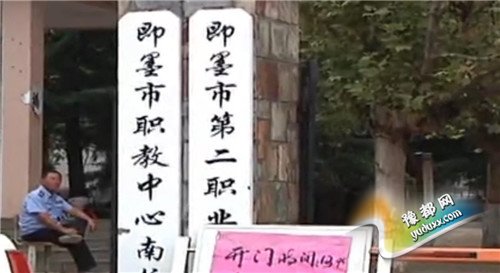 即墨市职教中心南校
即墨市第二职业
开门时间:13
豫都网
yuduxx.com